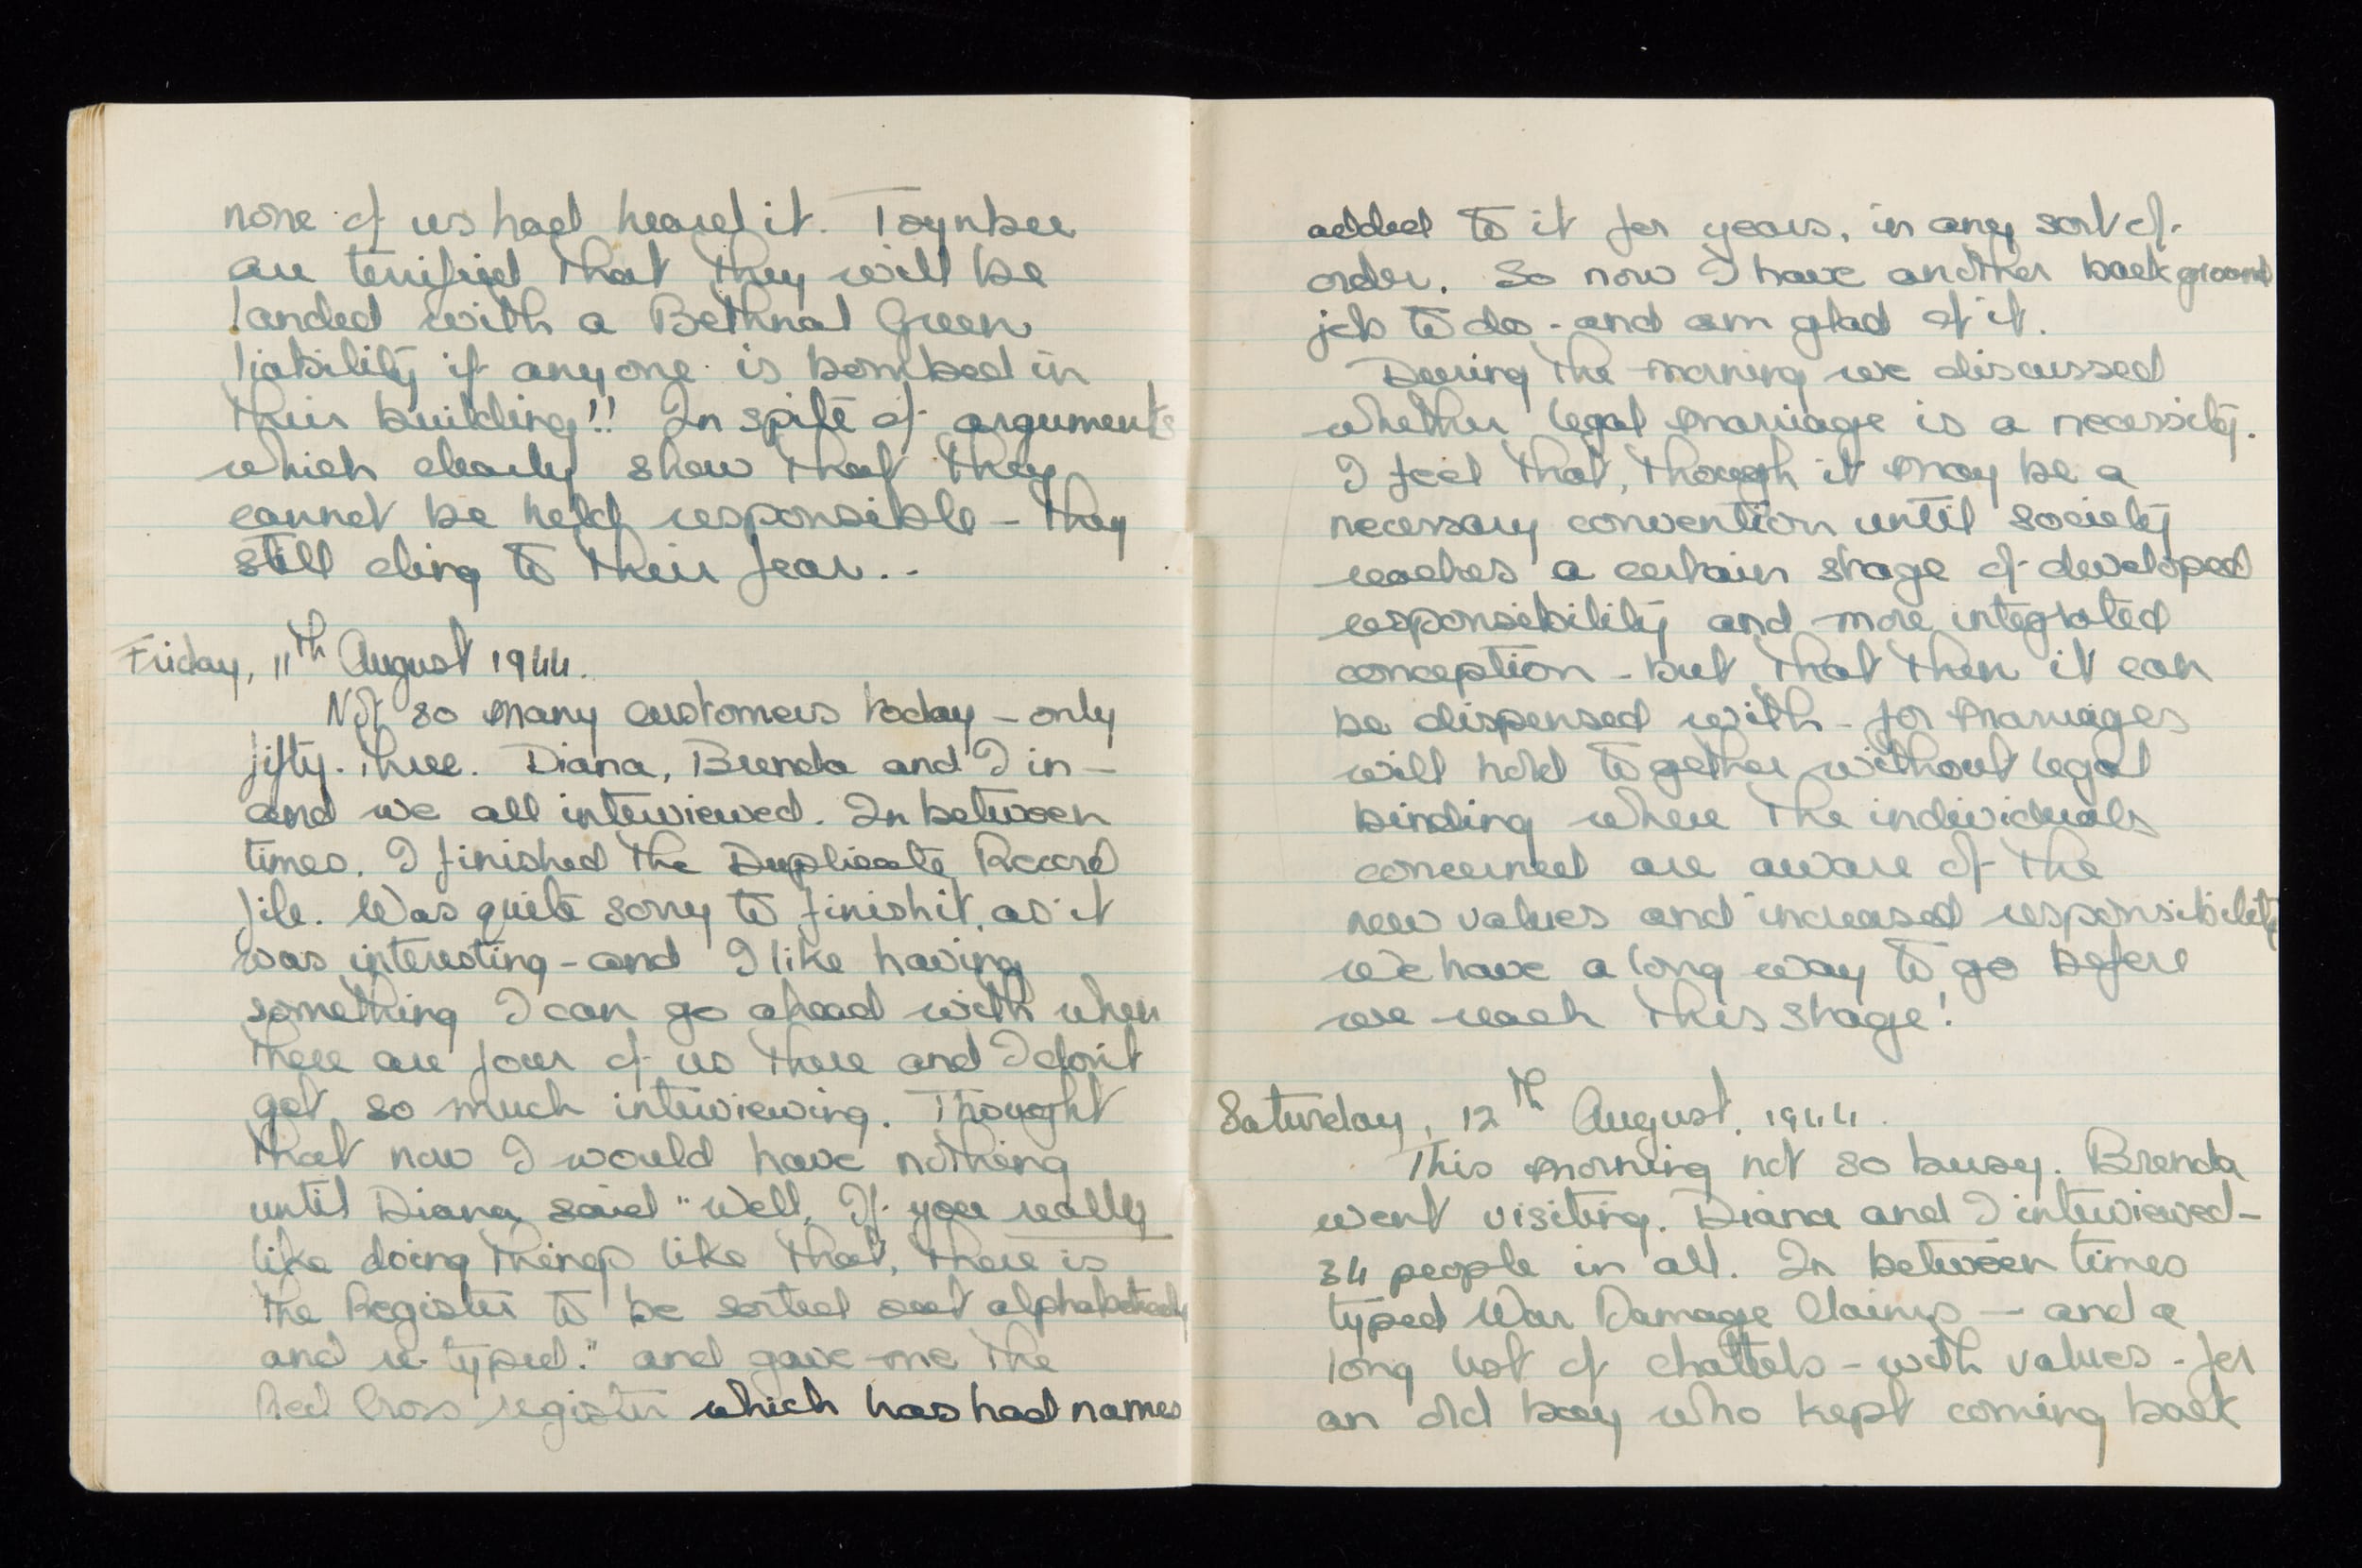 none of us had heard it. Toynbee
are terrified that they will be
landed with a Bethnal Green
liability if anyone is bombed in
their building!! In spite of arguments
which clearly show that they
cannot be held responsible - they
still cling to their fear..
Friday, 11th August 1944.
Not so many customers today - only
fifty-three. Diana, Brenda and I in -
and we all interviewed. In between
times, I finished the Duplicate Record
file. Was quite sorry to finish it, as it
was interesting - and I like having
something I can go ahead with when
there are four of us there and I don't
get so much interviewing. Thought
that now I would have nothing
until Diana said "Well, If you really
like doing things like that, there is
the Register to be sorted out alphabetically
and re-typed." and gave me the
Red Cross register which has had names
added to it for years, in any sort of
order. So now I have another background
job to do - and am glad of it.
During the morning we discussed
whether legal marriage is a necessity.
I feel that, though it may be a
necessary convention until society
reaches a certain stage of developed
responsibility and more integrated
conception - but that then it can
be dispensed with - for marriages
will hold together without legal
binding where the individuals
concerned are aware of the
new values and increased responsibility
We have a long way to go before
we reach this stage!
Saturday, 12th August, 1944.
This morning not so busy. Brenda
went visiting. Diana and I interviewed -
34 people in all. In between times
typed War Damage Claims - and a
long list of chattels - with values - for
an old boy who kept coming back